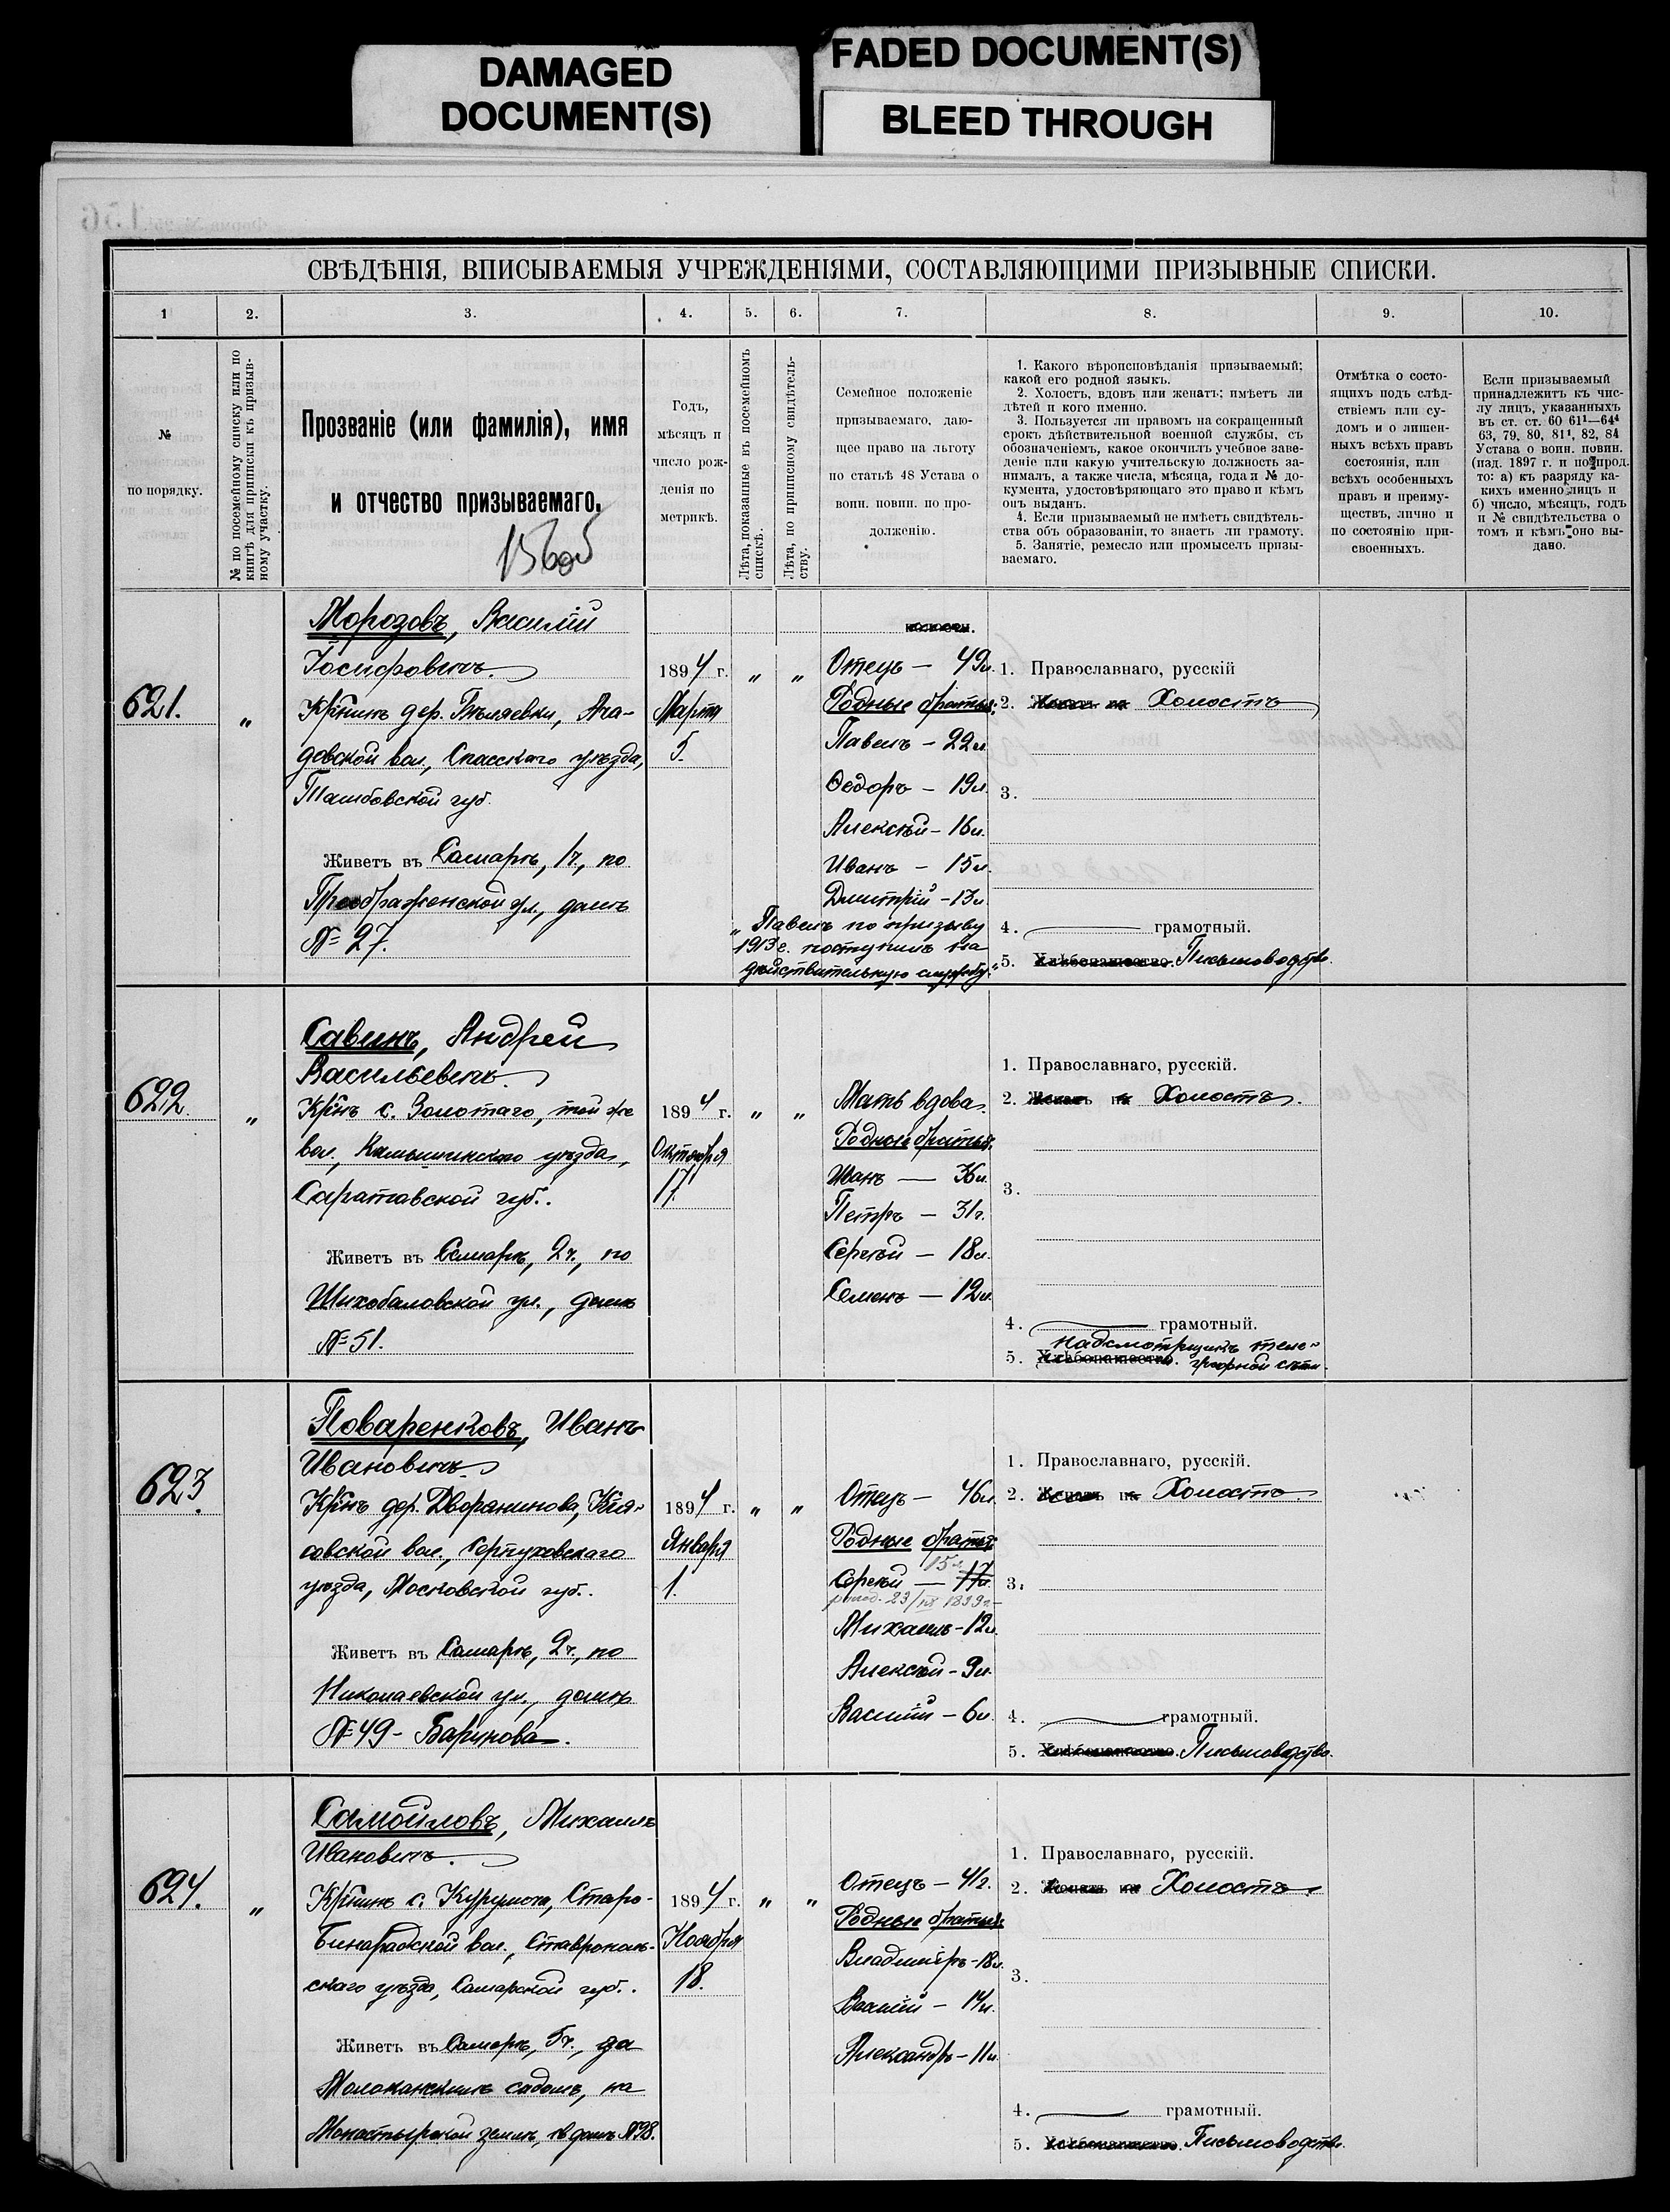 DAMAGED
DOCUMENT(S)
FADED DOCUMENT(S)
BLEED THROUGH
СВѢДѢНІЯ, ВПИСЫВАЕМЫЯ УЧРЕЖДЕНІЯМИ, СОСТАВЛЯЮЩИМИ ПРИЗЫВНЫЕ СПИСКИ.
1 2. 3. 4. 5. 6. 7. 8. 9. 10.
№
по порядку.
№ по посемейному списку или по
книгѣ для приписки къ призыв-
ному участку.
Прозваніе (или фамилія), имя
и отчество призываемаго.
Годъ,
мѣсяцъ и
число рож-
денія по
метрикѣ.
Лѣта, показанные въ посемейномъ
спискѣ.
Лѣта, по приписному свидѣтель-
ству.
Семейное положеніе
призываемаго, даю-
щее право на льготу
по статьѣ 48 Устава о
воин. повин. по про-
долженію.
1. Какого вѣроисповѣданія призываемый;
какой его родной языкъ.
2. Холостъ, вдовъ или женатъ; имѣетъ ли
дѣтей и кого именно.
3. Пользуется ли правомъ на сокращенный
срокъ дѣйствительной военной службы, съ
обозначеніемъ, какое окончилъ учебное заве-
деніе или какую учительскую должность за-
нималъ, а также числа, мѣсяца, года и № до-
кумента, удостовѣряющаго это право и кѣмъ
онъ выданъ.
4. Если призываемый не имѣетъ свидѣтель-
ства объ образованіи, то знаетъ ли грамоту.
5. Занятіе, ремесло или промыселъ призы-
ваемаго.
Отмѣтка о состо-
ящихъ подъ слѣд-
ствіемъ или су-
домъ и о лишен-
ныхъ всѣхъ правъ
состоянія, или
всѣхъ особенныхъ
правъ и преиму-
ществъ, лично и
по состоянію при-
своенныхъ.
Если призываемый
принадлежитъ къ чис-
лу лицъ, указанныхъ
въ ст. ст. 60 61¹—64⁴
63, 79, 80, 81¹, 82, 84
Устава о воин. повин.
(изд. 1897 г. и по прод.
то: а) къ разряду ка-
кихъ именно лицъ и
б) число, мѣсяцъ, годъ
и № свидѣтельства о
томъ и кѣмъ оно вы-
дано.
621. „
Морозовъ, Василій
Іосифовичъ.
Кр̃нинъ дер. Бѣляевки, Ача-
довской вол., Спасскаго уѣзда,
Тамбовской губ.
Живетъ въ Самарѣ, 1ч., по
Преображенской ул., домъ
№ 27.
1894 г.
Марта
5.
„ „
Отецъ — 49л.
Родные братья:
Павелъ — 22л.
Ѳедоръ — 19л.
Алексѣй — 16л.
Иванъ — 15л.
Дмитрій — 13л.
„Павелъ по призыву
1913 г. поступилъ на
дѣйствительную службу."
1. Православнаго, русскій
2. Холостъ
3.
4. грамотный.
5. Хлѣбопашество. Письмоводство.
622. „
Савинъ, Андрей
Васильевичъ.
Кр̃нъ с. Золотаго, той же
вол., Камышинскаго уѣзда,
Саратовской губ.
Живетъ въ Самарѣ, 2ч., по
Шихобаловской ул., домъ
№ 51.
1894 г.
Октября
17.
„ „
Мать вдова.
Родные братья:
Иванъ — 36л.
Петръ — 31г.
Сергѣй — 18л.
Семенъ — 12л.
1. Православнаго, русскій.
2. Холостъ.
3.
4. грамотный.
5. Хлѣбопашество. Надсмотрщикъ теле-
графной сѣти.
623.
Поваренковъ, Иванъ
Ивановичъ
Кр̃нъ дер. Дворянинова, Кія-
совской вол., Серпуховскаго
уѣзда, Московской губ.
Живетъ въ Самарѣ, 2ч., по
Николаевской ул., домъ
№ 49 - Баринова.
1894 г.
Января
1.
„ „
Отецъ — 46л.
Родные братья:
15л.
Сергѣй — 17л.
23/IX 1899 г.
Михаилъ — 12л.
Алексѣй — 9л.
Василій — 6л.
1. Православнаго, русскій.
2. Холостъ.
3.
4. грамотный.
5. Хлѣбопашество. Письмоводство.
624. „
Самойловъ, Михаилъ
Ивановичъ.
Кр̃нинъ с. Курумоча, Старо-
Бинарадской вол., Ставрополь-
скаго уѣзда, Самарской губ.
Живетъ въ Самарѣ, 5ч., за
Молоканскимъ садомъ, на
Монастырской землѣ, въ домѣ № 98.
1894 г.
Ноября
18.
„ „
Отецъ — 41г.
Родные братья:
Владиміръ — 18л.
Василій — 14л.
Александръ — 11л.
1. Православнаго, русскій.
2. Холостъ.
3.
4. грамотный.
5. Хлѣбопашество. Письмоводство.